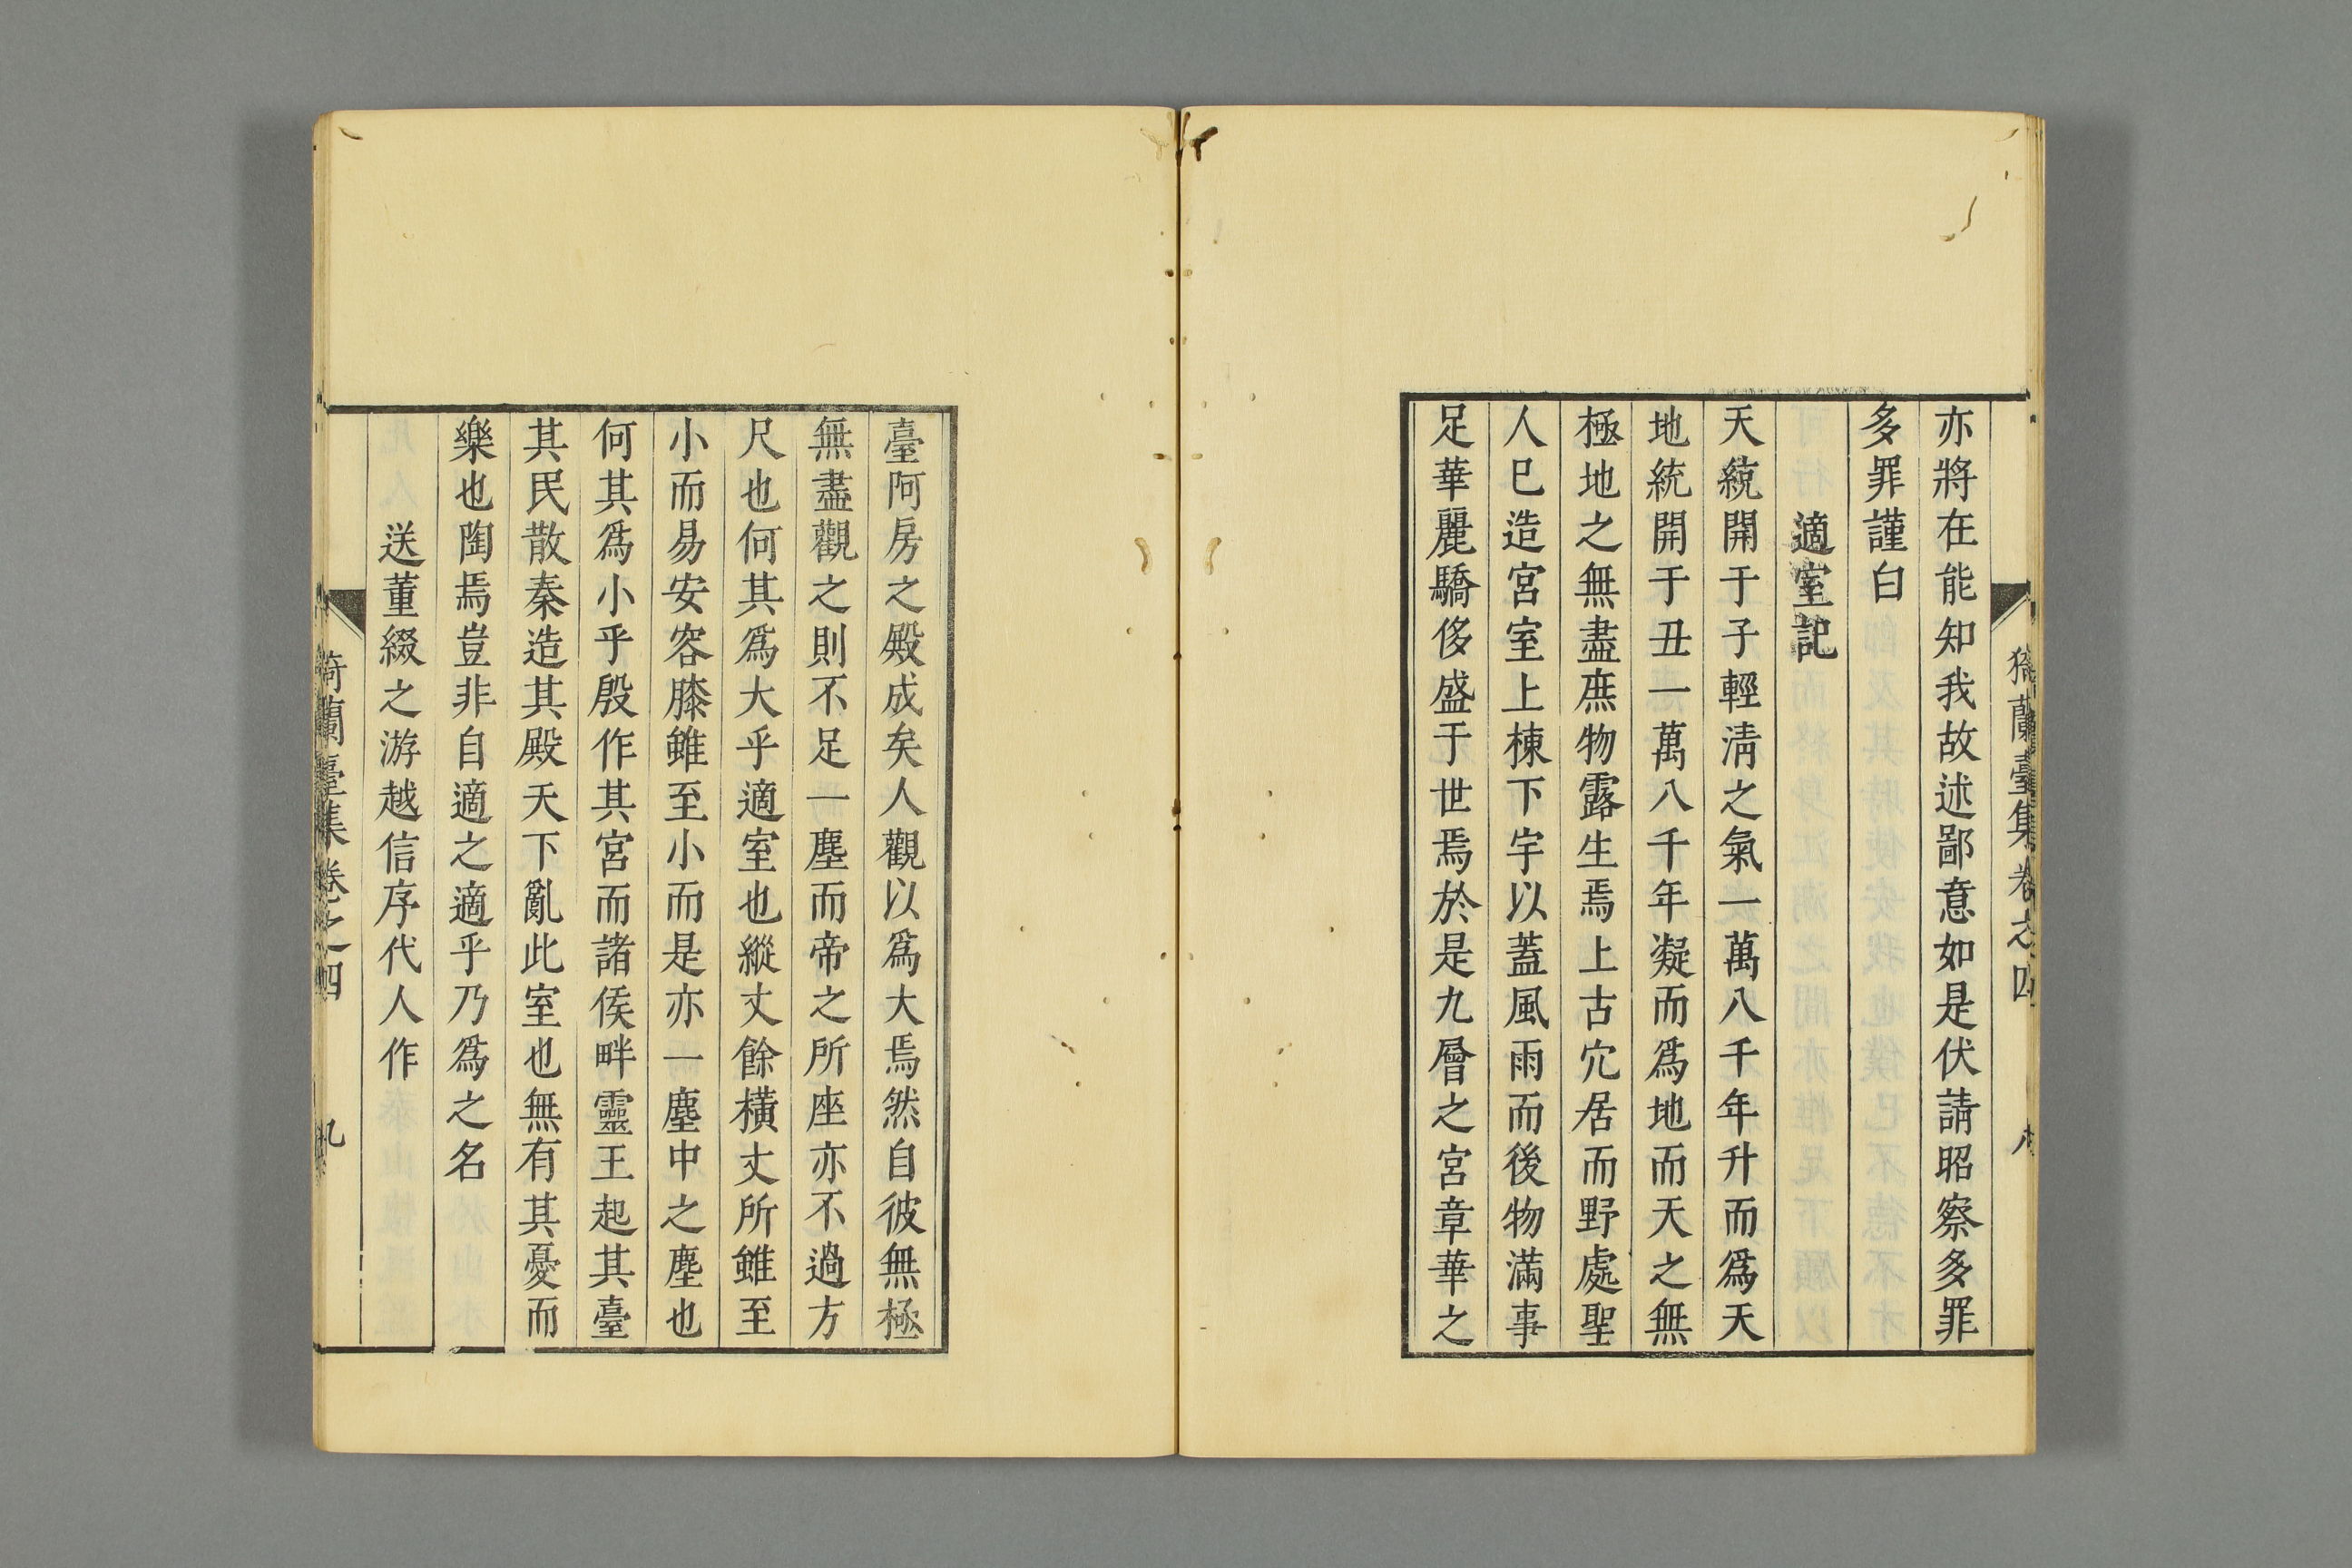 猗蘭臺集卷之四 八
亦將在能知我故述鄙意如是伏請昭察多罪
多罪謹白
適室記
天統開于子輕淸之氣一萬八千年升而爲天
地統開于丑一萬八千年凝而爲地而天之無
極地之無盡庶物露生焉上古穴居而野處聖
人巳造宮室上棟下宇以蓋風雨而後物滿事
足華麗驕侈盛于世焉於是九層之宮章華之
臺阿房之殿成矣人觀以爲大焉然自彼無極
無盡觀之則不足一塵而帝之所座亦不過方
尺也何其爲大乎適室也縱丈餘橫丈所雖至
小而易安容膝雖至小而是亦一塵中之塵也
何其爲小乎殷作其宮而諸侯畔靈王起其臺
其民散秦造其殿天下亂此室也無有其憂而
樂也陶焉豈非自適之適乎乃爲之名
送董綴之游越信序代人作
猗蘭臺集卷之四 九